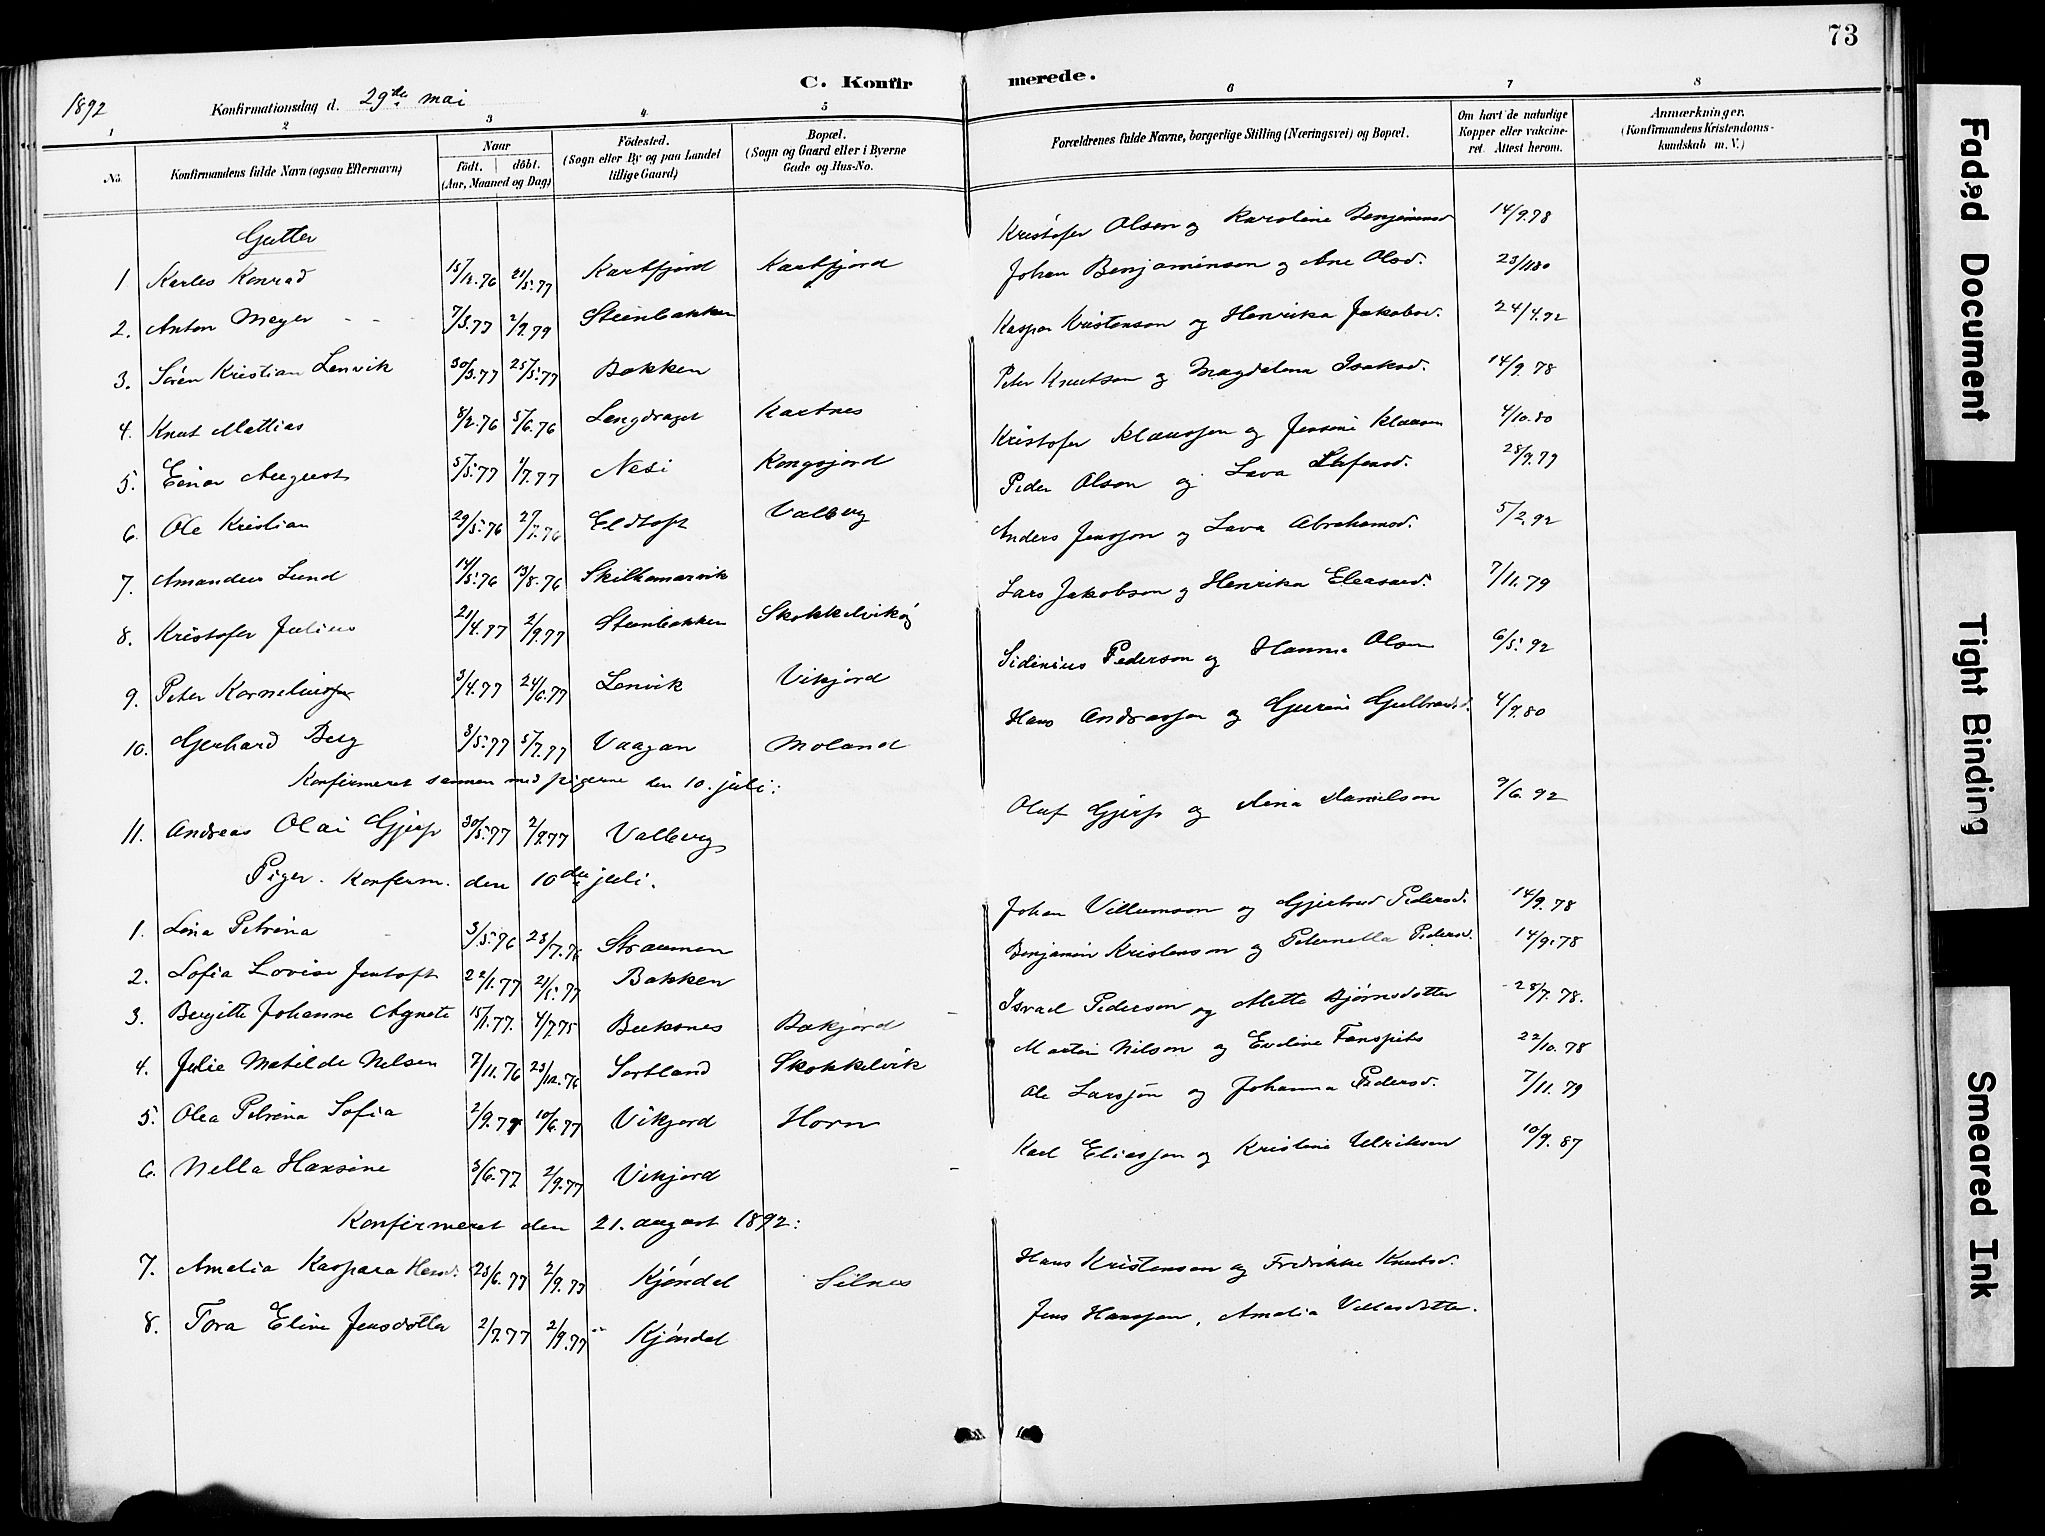 73
C. Konfirmerede.
1892 Konfirmationsdag d. 29de mai
1 2 3 4 5 6 7 8
No. Konfirmandens fulde Navn (ogsaa Efternavn) Naar födt. döbt. (Aar, Maaned og Dag) Födested. (Sogn eller By og paa Landet tillige Gaard) Bopæl. (Sogn og Gaard eller i Byerne Gade og Hus-No. Forældrenes fulde Navne, borgerlige Stilling (Næringsvei) og Bopæl. Om havt de naturlige Kopper eller vakcineret. Attest herom. Anmærkninger. (Konfirmandens Kristendomskundskab m. V.)
Gutter
1 Karles Konrad 15/12.76 21/5.77 Kartfjord Kartfjord Kristofer Olsen og Karoline Benjaminsd 14/9.78
2. Anton Meyer - - 7/3.77 2/9.79 Steinbakken Johan Benjaminsen og Ane Olsd. 23/11.80
3. Sören Kristian Lenvik 30/3.77 25/5.77 Bakken Kasper Kristenson og Henrika Jakobsd. 24/4.92
4. Knut Mattias 8/2.76 5/6.76 Langdraget Kartnes Peter Knutson og Magdalena Isaksd. 14/9.78
5. Einar August 5/5.77 1/7.77 Nesi Kongsjord Kristofer Klaussen og Jensine Klausen 4/10.80
6. Ole Kristian 29/5.76 27/7.76 Eldtoft Valberg Peder Olson og Lava 28/9.79
7. Amandus Lund 14/5.76 13/8.76 Skilkamarvik Anders Jensson og Lava Abrahamsd. 5/2.92
8. Kristofer Julius 21/4.77 2/9.77 Steinbakken Skokkelvik Lars Jakobson og Henrika Eleasard. 7/11.79
9. Peter Kornelius 3/4.77 24/6.77 Lenvik Vikjord Sidinius Pederson og Hanna Olsen 6/5.92
10. Gerhard Berg 3/5.77 5/7.77 Vaagan Moland Hans Andreassen og Gurine Gulbrandsd. 4/9.80
Konfirmeret sammen med pigerne den 10. juli:
11. Andreas Olai Gjerp 30/5.77 2/9.77 Valberg Oluf Gjerp og Danielson 9/6.92
Piger. Konfirm. den 10de juli.
1. Lina Petrina 3/5.76 23/7.76 Straumen Johan Villumson og Gjertrud Pedersd. 14/9.78
2. Sofia Lovise Jentoft 22/1.77 21/5.77 Bakken Benjamin Kristenson og Peternella Pedersd. 14/9.78
3. Bergitte Johanne Agnete 15/1.77. 4/7.75 Buksnes Bakjord Israel Pederson og Mette Bjørnsdotter 28/7.78.
4. Julie Matilde Nilsen 7/11.76 23/12.76 Sortland Skokkelvik Martin Nilson og Eveline 22/10.78
5. Olea Petrina Sofia 2/9.77 10/6.77 Vikjord Horn Ole Larsjon og Johanna Pedersd. 7/11.79
6. Nella Hansine 3/6.77. 2/9.77 Vikjord Karl Eliassen og Kristine Ulriksen 10/9.87
Konfirmeret den 21. august 1892:
7. Amalia Kaspara Hansd. 28/6.77 2/9.77 Kjöndal Silnes Hans Kristenson og Fredrikke Knutsd.
8. Tora Eline Jensdotter 2/7.77 2/9.77 Kjöndal Jens Hanssen, Amalia
Faded Document
Tight Binding
Smeared Ink